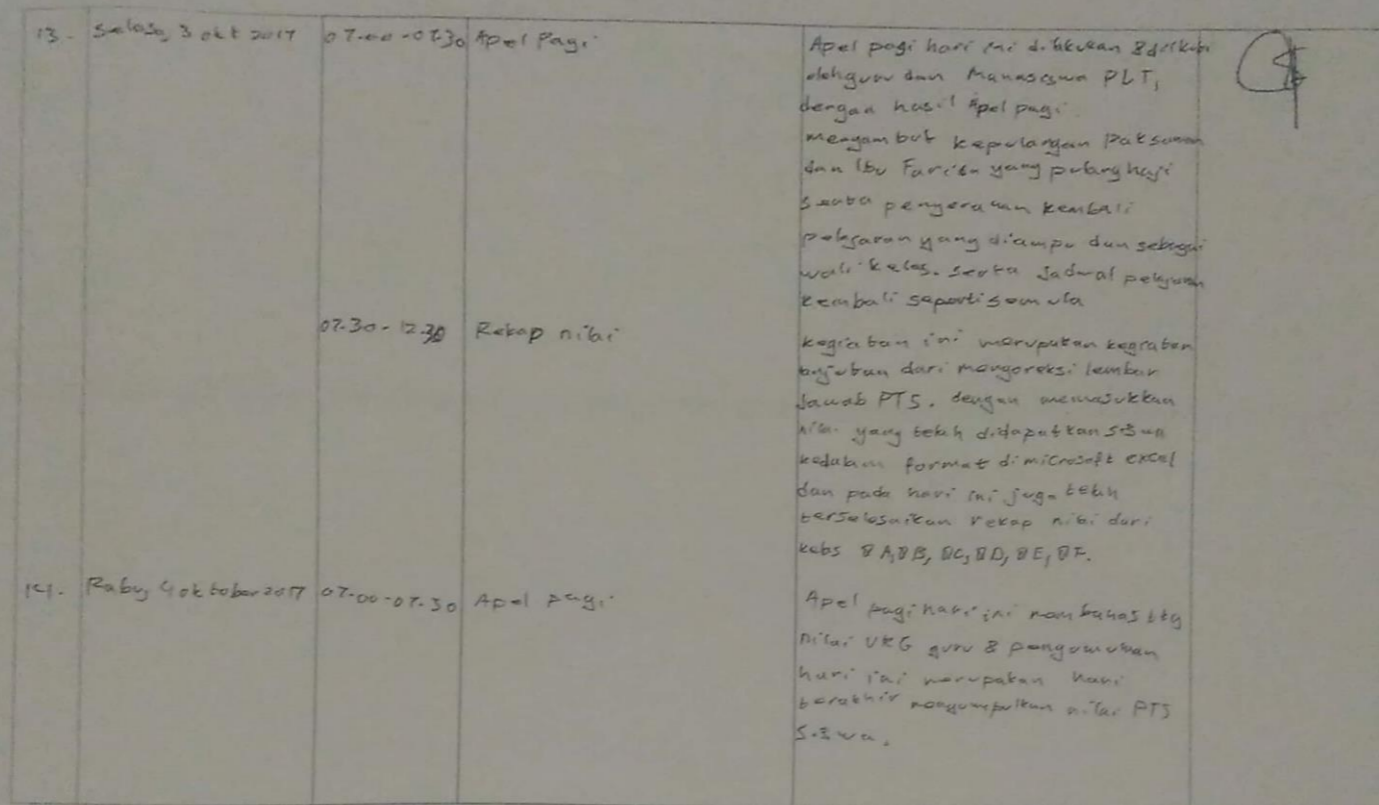 13. Selasa, 3 okt 2017 07.00-07.30 Apel Pagi
Apel pagi hari ini dilakukan & diikuti
oleh guru dan Mahasiswa PLT,
dengan hasil Apel pagi
menyambut kepulangan Pak
dan Ibu yang pulang haji
serta penyerahan kembali
pelajaran yang diampu dan sebagai
wali kelas. serta Jadwal pelajaran
kembali seperti semula
07.30-12.30 Rekap nilai
kegiatan ini merupakan kegiatan
lanjutan dari mengoreksi lembar
Jawab PTS. dengan memasukkan
nilai yang telah didapatkan siswa
kedalam format di microsoft excel
dan pada hari ini juga telah
terselesaikan rekap nilai dari
kelas 8A, 8B, 8C, 8D, 8E, 8F.
14. Rabu, 4 oktober 2017 07.00-07.30 Apel pagi
Apel pagi hari ini membahas ttg
nilai UKG guru & pengumuman
hari ini merupakan hari
terakhir mengumpulkan nilai PTS
siswa.